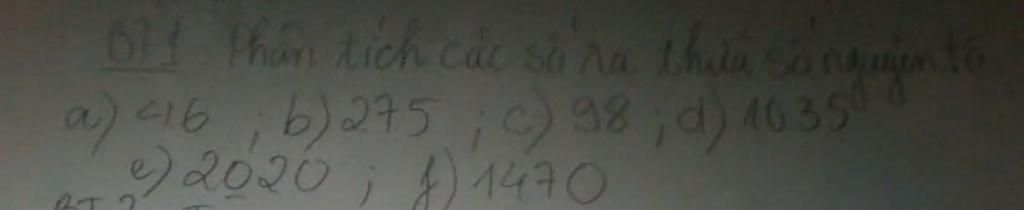 BT1 Phân tích các số ra thừa số nguyên tố
a) 416 ; b) 275 ; c) 98 ; d) 1035
e) 2020 ; f) 1470
BT 2